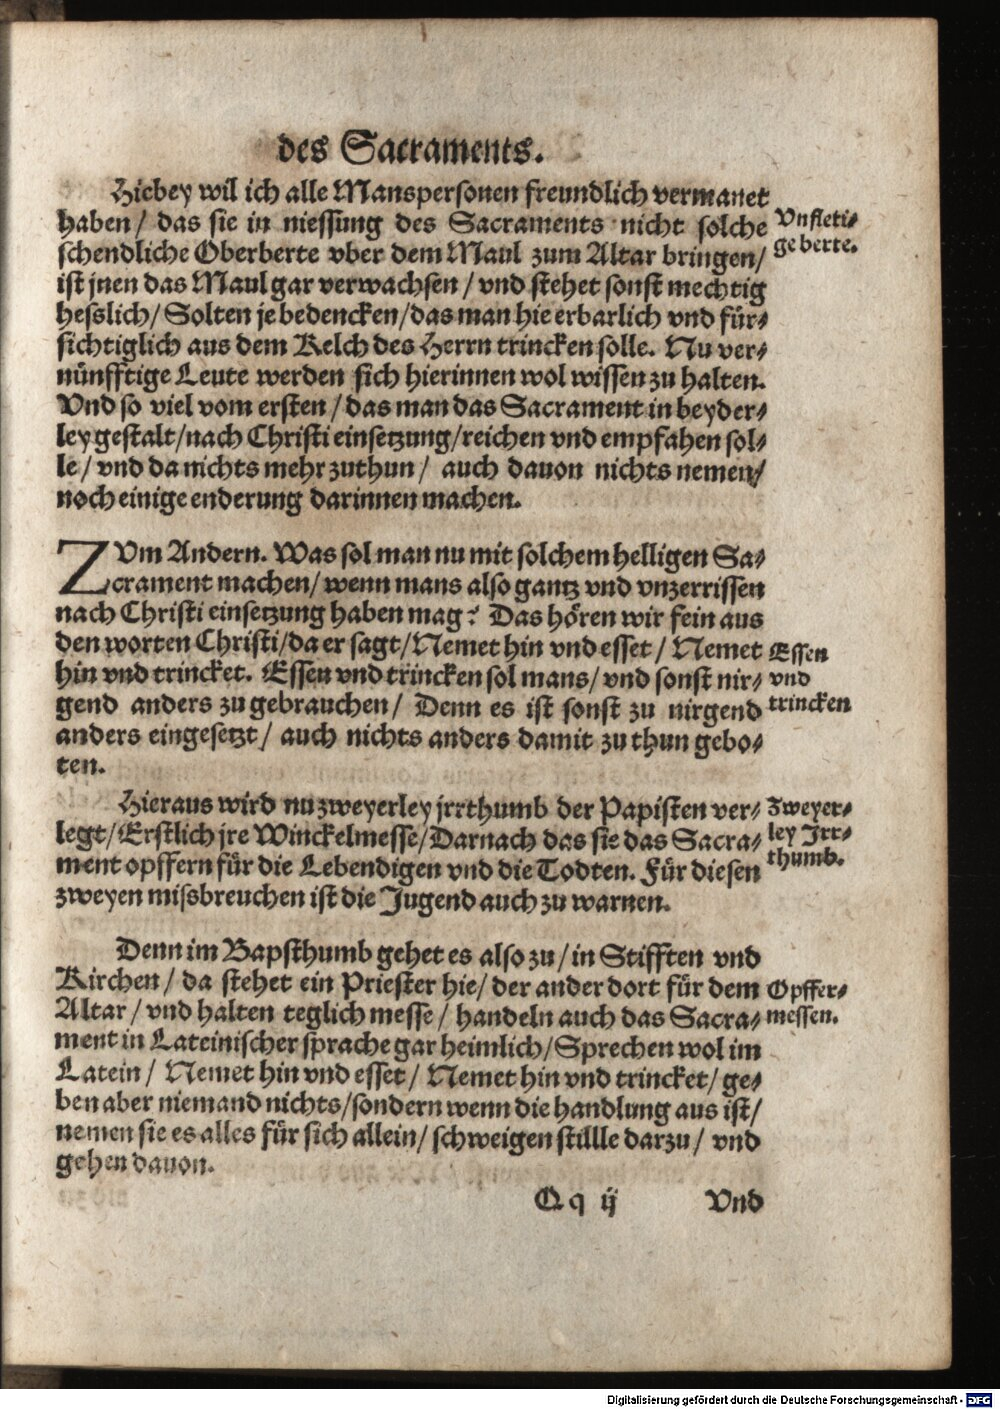 des Sacraments.
Hiebey wil ich alle Manspersonen freundlich vermanet
haben / das sie in niessung des Sacraments nicht solche
schendliche Oberberte vber dem Maul zum Altar bringen /
ist jnen das Maul gar verwachsen / vnd stehet sonst mechtig
hesslich / Solten je bedencken / das man hie erbarlich vnd für-
sichtiglich aus dem Kelch des Herrn trincken solle. Nu ver-
nünfftige Leute werden sich hierinnen wol wissen zu halten.
Vnd so viel vom ersten / das man das Sacrament in beyder-
ley gestalt / nach Christi einsetzung / reichen vnd empfahen sol-
le / vnd da nichts mehr zuthun / auch dauon nichts nemen /
noch einige enderung darinnen machen.
Vnfleti-
ge berte.
ZVm Andern. Was sol man nu mit solchem heiligen Sa-
crament machen / wenn mans also gantz vnd vnzerrissen
nach Christi einsetzung haben mag? Das hören wir fein aus
den worten Christi / da er sagt / Nemet hin vnd esset / Nemet
hin vnd trincket. Essen vnd trincken sol mans / vnd sonst nir-
gend anders zu gebrauchen / Denn es ist sonst zu nirgend
anders eingesetzt / auch nichts anders damit zu thun gebo-
ten.
Essen
vnd
trincken
Hieraus wird nu zweyerley jrrthumb der Papisten ver-
legt / Erstlich jre Winckelmesse / Darnach das sie das Sacra-
ment opffern für die Lebendigen vnd die Todten. Für diesen
zweyen missbreuchen ist die Jugend auch zu warnen.
Zweyer-
ley Irr-
thumb.
Denn im Bapsthumb gehet es also zu / in Stifften vnd
Kirchen / da stehet ein Priester hie / der ander dort für dem
Altar / vnd halten teglich messe / handeln auch das Sacra-
ment in Lateinischer sprache gar heimlich / Sprechen wol im
Latein / Nemet hin vnd esset / Nemet hin vnd trincket / ge-
ben aber niemand nichts / sondern wenn die handlung aus ist /
nemen sie es alles für sich allein / schweigen stille darzu / vnd
gehen dauon.
Opffer-
messen.
Q q ij
Vnd
Digitalisierung gefördert durch die Deutsche Forschungsgemeinschaft - DFG